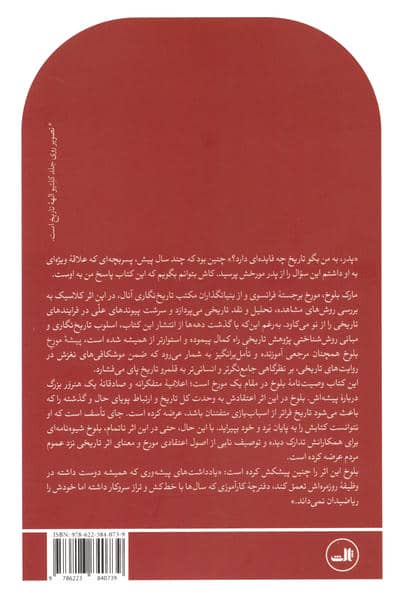 * تصویر روی جلد کلئیو الههٔ تاریخ است.
«پدر، به من بگو تاریخ چه فایده‌ای دارد؟» چنین بود که چند سال پیش، پسربچه‌ای که علاقهٔ ویژه‌ای
به او داشتم این سؤال را از پدر مورخش پرسید. کاش بتوانم بگویم که این کتاب پاسخ من به اوست.
مارک بلوخ، مورخ برجستهٔ فرانسوی و از بنیانگذاران مکتب تاریخ‌نگاری آنال، در این اثر کلاسیک به
بررسی روش‌های مشاهده، تحلیل و نقد تاریخی می‌پردازد و سرشت پیوندهای علّی در فرایندهای
تاریخی را از نو می‌کاود. به‌رغم این‌که با گذشت دهه‌ها از انتشار این کتاب، اسلوب تاریخ‌نگاری و
مبانی روش‌شناختی پژوهش تاریخی راه کمال پیموده و استوارتر از همیشه شده است، پیشهٔ مورخ
بلوخ همچنان مرجعی آموزنده و تأمل‌برانگیز به شمار می‌رود که ضمن موشکافی‌های نغزش در
روایت‌های تاریخی، بر نظرگاهی جامع‌نگرتر و انسانی‌تر به قلمرو تاریخ پای می‌فشارد.
این کتاب وصیت‌نامهٔ بلوخ در مقام یک مورخ است؛ اعلامیهٔ متفکرانه و صادقانهٔ یک هنرور بزرگ
دربارهٔ پیشه‌اش. بلوخ در این اثر اعتقادش به وحدت کل تاریخ و ارتباط پویای حال و گذشته را که
باعث می‌شود تاریخ فراتر از اسباب‌بازی متفننان باشد، عرضه کرده است. جای تأسف است که او
نتوانست کتابش را به پایان برد و خود بپیراید. با این حال، حتی در این اثر ناتمام، بلوخ شیوه‌نامه‌ای
برای همکارانش تدارک دیده و توصیف نابی از اصول اعتقادی مورخ و معنای اثر تاریخی نزد عموم
مردم عرضه کرده است.
بلوخ این اثر را چنین پیشکش کرده است: «یادداشت‌های پیشه‌وری که همیشه دوست داشته در
وظیفهٔ روزمره‌اش تعمل کند، دفترچهٔ کارآموزی که سال‌ها با خط‌کش و تراز سروکار داشته اما خودش را
ریاضیدان نمی‌داند.»
ISBN: 978-622-384-073-9
9 786223 840739
ثالث